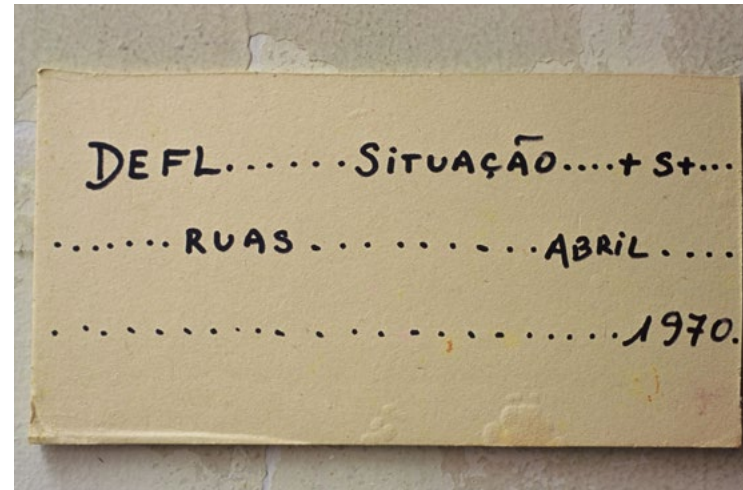 DEFL......SiTUAÇÃO....+ S+...
.......RUAS.........ABRiL....
......................1970.